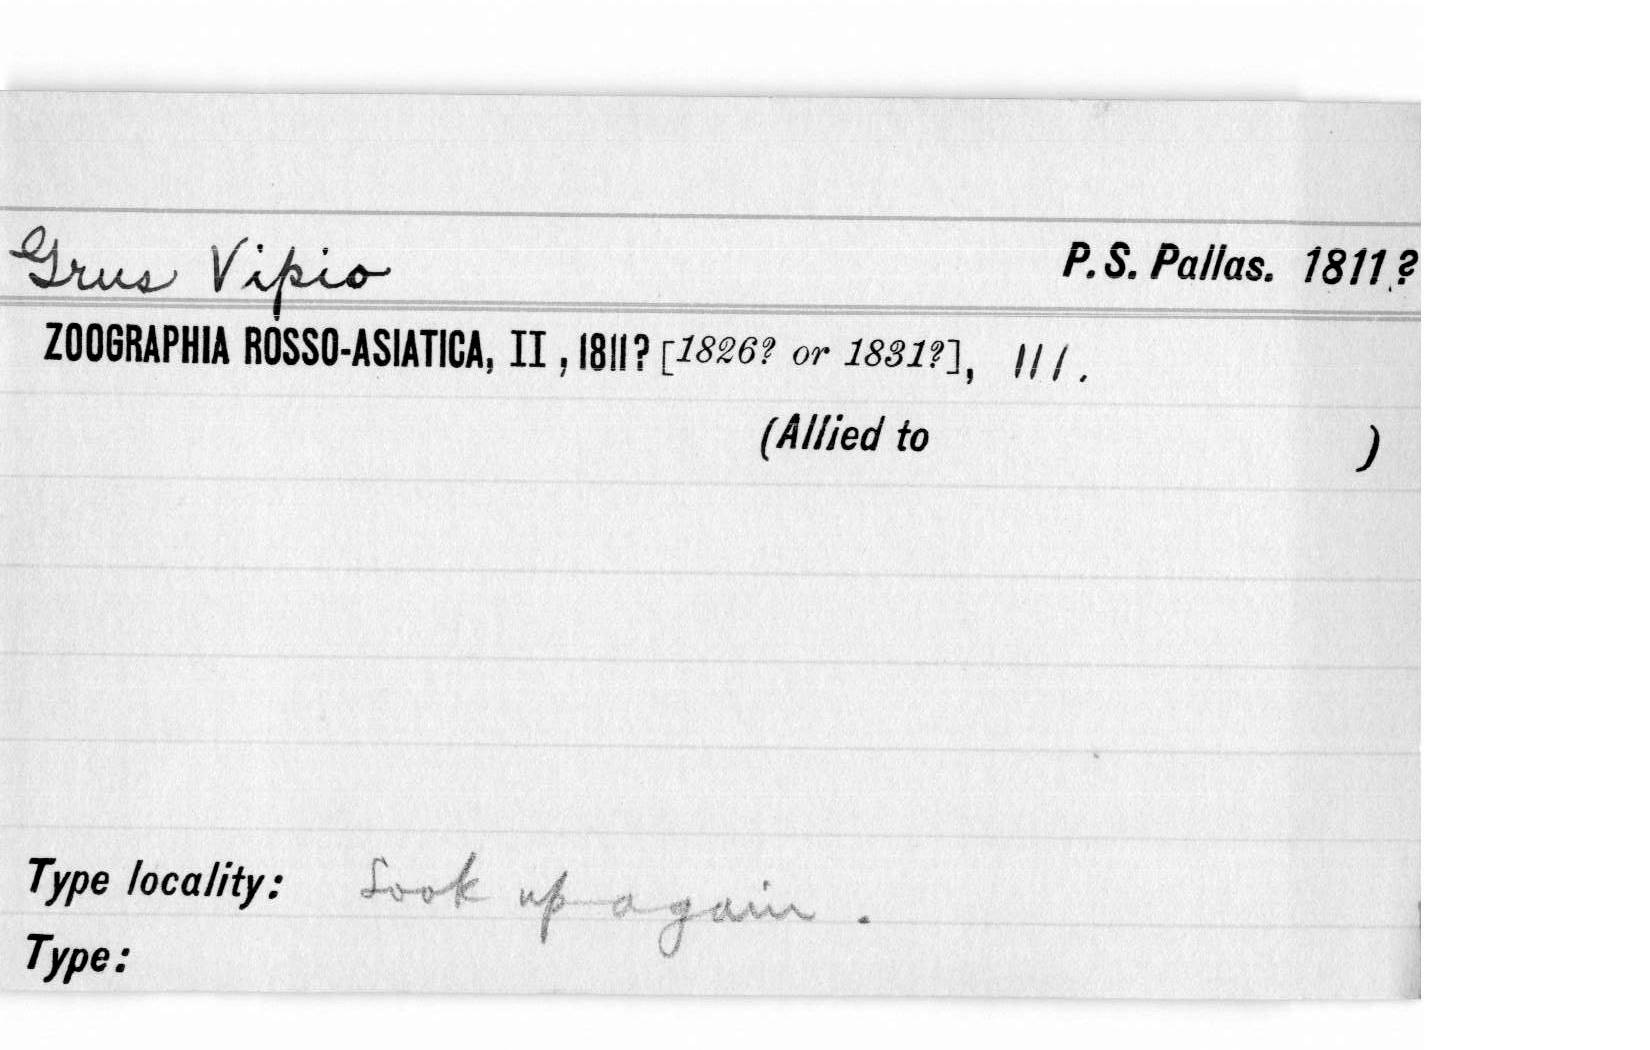 Grus Vipio P. S. Pallas. 1811?
ZOOGRAPHIA ROSSO-ASIATICA, II, 1811? [1826? or 1831?], 111.
(Allied to )
Type locality: Look up again.
Type: